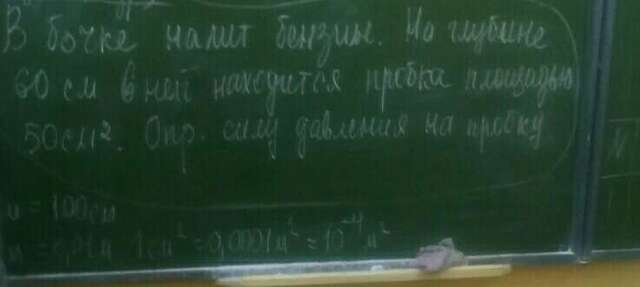 В бочке налит бензин. На глубине
60 см в ней находится пробка площадью
50 см². Опр. силу давления на пробку
м = 100 см
1 см² = 0,0001 м² = 10⁻⁴ м²